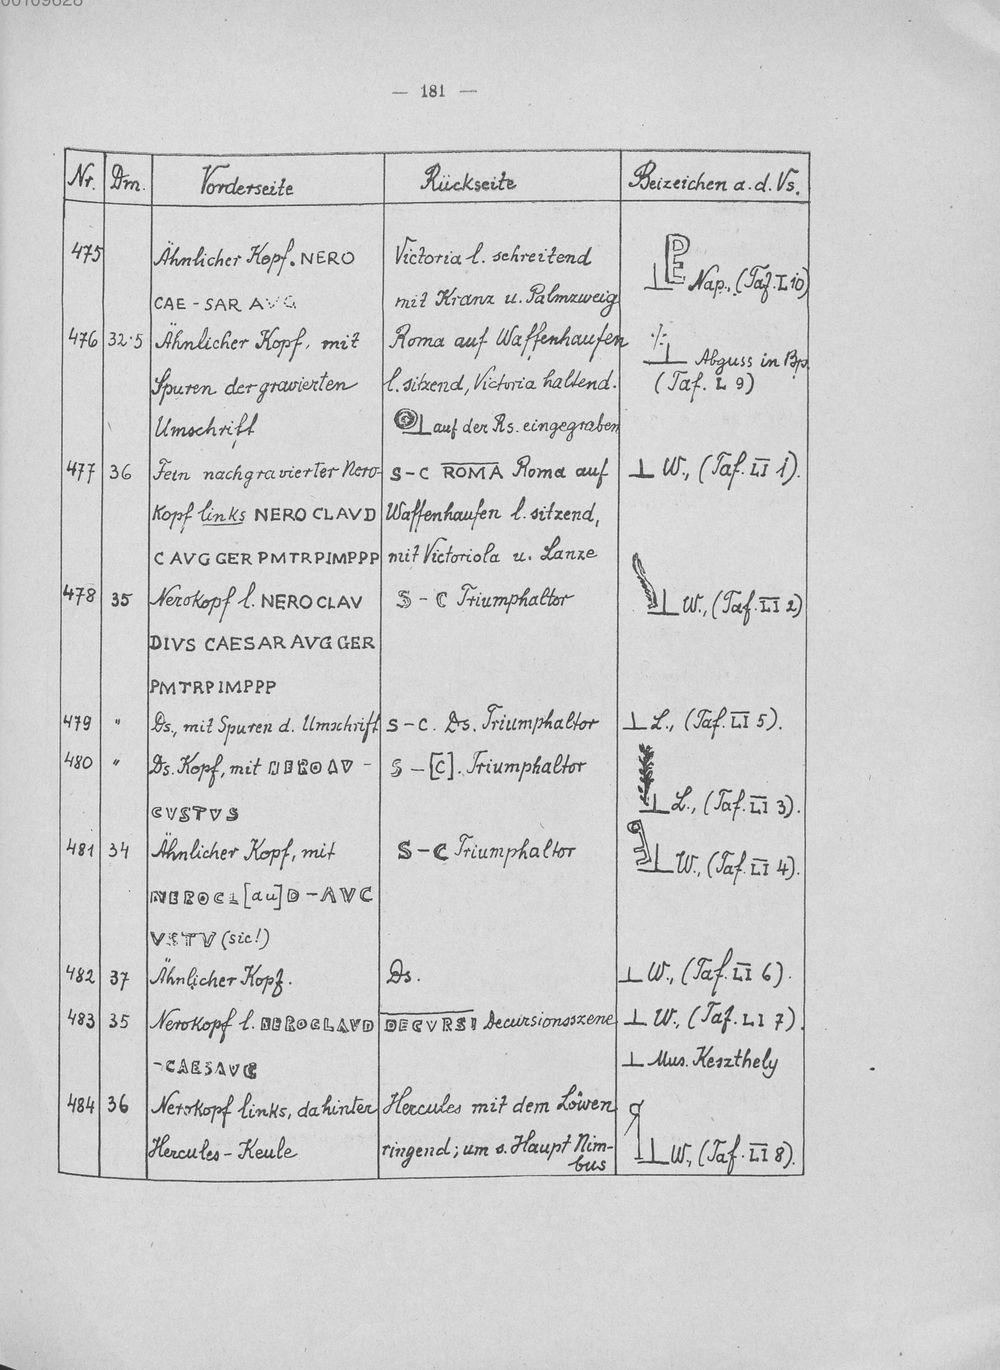 00109628
— 181 —
Nr. Dm. Vorderseite Rückseite Beizeichen a. d. Vs.
475 Ähnlicher Kopf. NERO Victoria l. schreitend
CAE - SAR AVG mit Kranz u. Palmzweig Nap., (Taf. L 10)
476 32·5 Ähnlicher Kopf, mit Roma auf Waffenhaufen
Spuren der gravierten l. sitzend, Victoria haltend. Abguss in Bp. (Taf. L 9)
Umschrift auf der Rs. eingegraben
477 36 Fein nachgravierter Nero- S - C ROMA Roma auf W., (Taf. LI 1).
Kopf links NERO CLAVD Waffenhaufen l. sitzend,
C AVG GER PMTRPIMPPP mit Victoriola u. Lanze
478 35 Nerokopf l. NERO CLAV S - C Triumphaltor W., (Taf. LI 2)
DIVS CAESAR AVG GER
PMTRPIMPPP
479 " Ds., mit Spuren d. Umschrift S - C. Ds. Triumphaltor L., (Taf. LI 5).
480 " Ds. Kopf, mit NERO AV - S - [C]. Triumphaltor
GVSTVS L., (Taf. LI 3).
481 34 Ähnlicher Kopf, mit S - C Triumphaltor W., (Taf. LI 4).
NEROCL[au]D - AVC
VSTV (sic!)
482 37 Ähnlicher Kopf. Ds. W., (Taf. LI 6).
483 35 Nerokopf l. NEROCLAVD DECVRSI Decursionsszene W., (Taf. LI 7).
- CAESAVG Mus. Keszthely
484 36 Nerokopf links, dahinter Hercules mit dem Löwen
Hercules - Keule ringend; um s. Haupt Nim- W., (Taf. LI 8).
bus